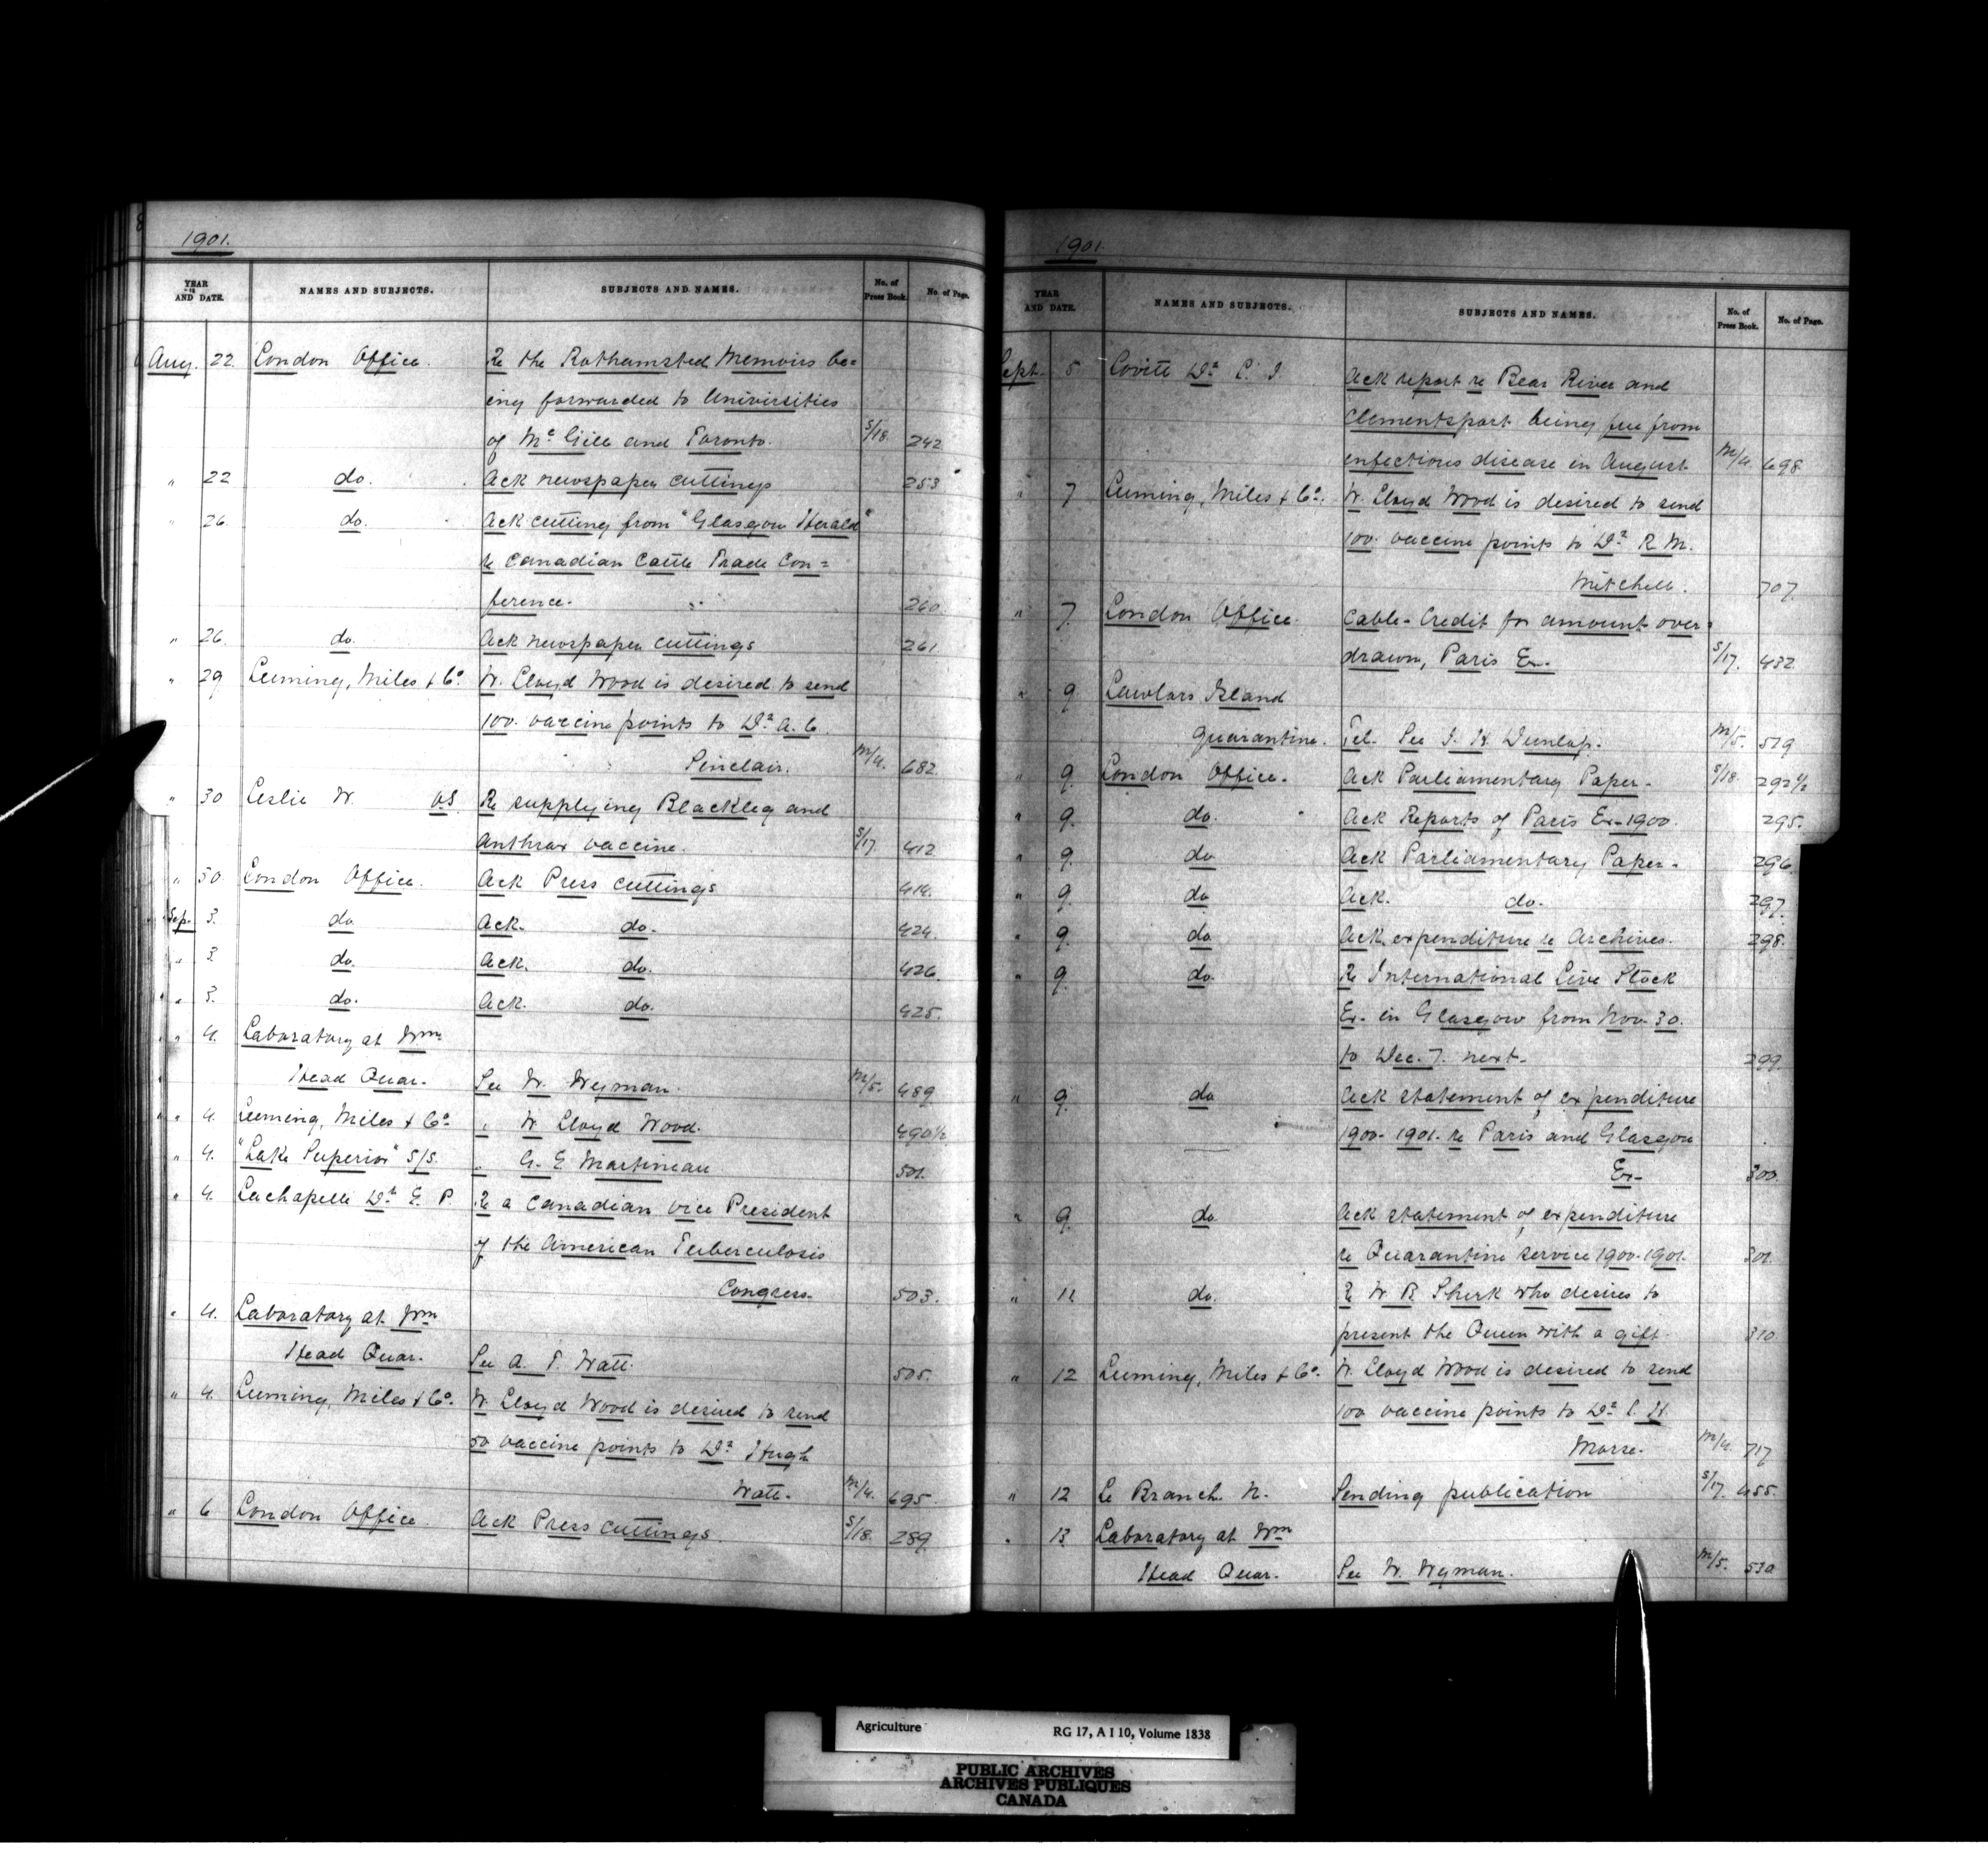 1901.
YEAR AND DATE. NAMES AND SUBJECTS. SUBJECTS AND NAMES. No. of Press Book. No. of Page.
Aug. 22. London Office. Re the Rothamsted Memoirs be=
ing forwarded to Universities
of McGill and Toronto. S/18. 242
" 22 do. Ack newspaper cuttings 253
" 26. do. Ack cutting from "Glasgow Herald"
re Canadian Cattle Trade Con=
ference. 260
" 26. do. Ack newspaper cuttings 261
" 29 Leeming, Miles & Co. W. Lloyd Wood is desired to send
100 vaccine points to Dr A. C.
Sinclair. M/4. 682.
" 30 Leslie W. V.S. Re supplying Blackleg and
Anthrax vaccine. S/17. 412
" 30. London Office. Ack Press cuttings 414.
Sep. 3. do. Ack. do. 424.
" 3. do. Ack. do. 426
" 3. do. Ack. do. 425.
" 4. Laboratory at Wm
Head Quar. See W. Wyman. M/5. 489
" 4. Leeming, Miles & Co. " W. Lloyd Wood. 490½
" 4. "Lake Superior" S/S. " G. E. Martineau 501.
" 4. Lachapelle Dr E. P. Re a Canadian vice President
of the American Tuberculosis
Congress. 503.
" 4. Laboratory at Wm
Head Quar. See A. T. Watt. 505.
" 4. Leeming, Miles & Co. W. Lloyd Wood is desired to send
50 vaccine points to Dr Hugh
Watt. M/4. 695.
" 6 London Office. Ack Press cuttings. S/18. 289
1901.
YEAR AND DATE. NAMES AND SUBJECTS. SUBJECTS AND NAMES. No. of Press Book. No. of Page.
Sept. 5 Lovitt Dr L. J. Ack report re Bear River and
Clementsport being free from
infectious disease in August. M/4. 698
" 7 Leeming, Miles & Co. W. Lloyd Wood is desired to send
100. vaccine points to Dr R. M.
Mitchell. 707.
" 7. London Office. Cable-Credit for amount over=
drawn, Paris Ex. S/17. 432
" 9 Lawlors Island
Quarantine. Tel. See J. H. Dunlap. M/5. 519
" 9. London Office. Ack Parliamentary Paper. S/18. 292½
" 9. do. Ack Reports of Paris Ex-1900. 295.
" 9. do Ack Parliamentary Paper. 296.
" 9. do Ack. do. 297.
" 9. do Ack. expenditure re Archives. 298.
" 9. do Re International Live Stock
Ex. in Glasgow from Nov. 30.
to Dec. 7. next. 299.
" 9. do Ack statement of expenditure
1900-1901. re Paris and Glasgow
Ex- 300.
" 9. do Ack statement of expenditure
re Quarantine service 1900-1901. 301.
" 11 do. Re W. B. Sherk who desires to
present the Queen with a gift. 310.
" 12 Leeming, Miles & Co. W. Lloyd Wood is desired to send
100 vaccine points to Dr L. H.
Morse. M/4. 717
" 12 Le Branch. N. Sending publication S/17. 455.
" 13 Laboratory at Wm
Head Quar. See W. Wyman. M/5. 530
Agriculture RG 17, A I 10, Volume 1838
PUBLIC ARCHIVES
ARCHIVES PUBLIQUES
CANADA